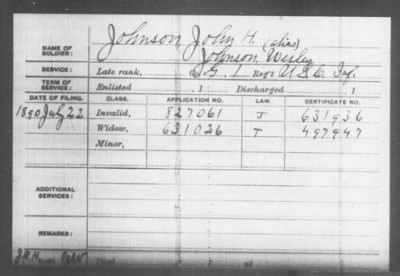 NAME OF SOLDIER: Johnson, John H. (alias)
Johnson, Wesley
SERVICE: Late rank, Co G. 1 Reg't U.S.C. Inf.
TERM OF SERVICE: Enlisted , 1 Discharged , 1
DATE OF FILING. CLASS. APPLICATION NO. LAW. CERTIFICATE NO.
1890 July 22 Invalid, 827061 J 631936
Widow, 631026 T 497947
Minor,
ADDITIONAL SERVICES:
REMARKS: